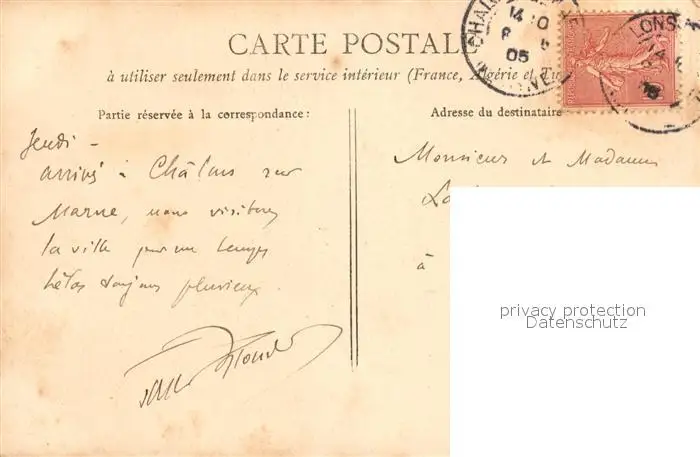 CARTE POSTALE
à utiliser seulement dans le service intérieur (France, Algérie et Tu
Partie réservée à la correspondance:
Jeudi -
arrivés à Châlons sur
Marne, nous visitons
la ville par un temps
hélas toujours pluvieux.
Adresse du destinataire
Monsieur et Madame
à
CHAL
14 10
05
LONS
privacy protection
Datenschutz